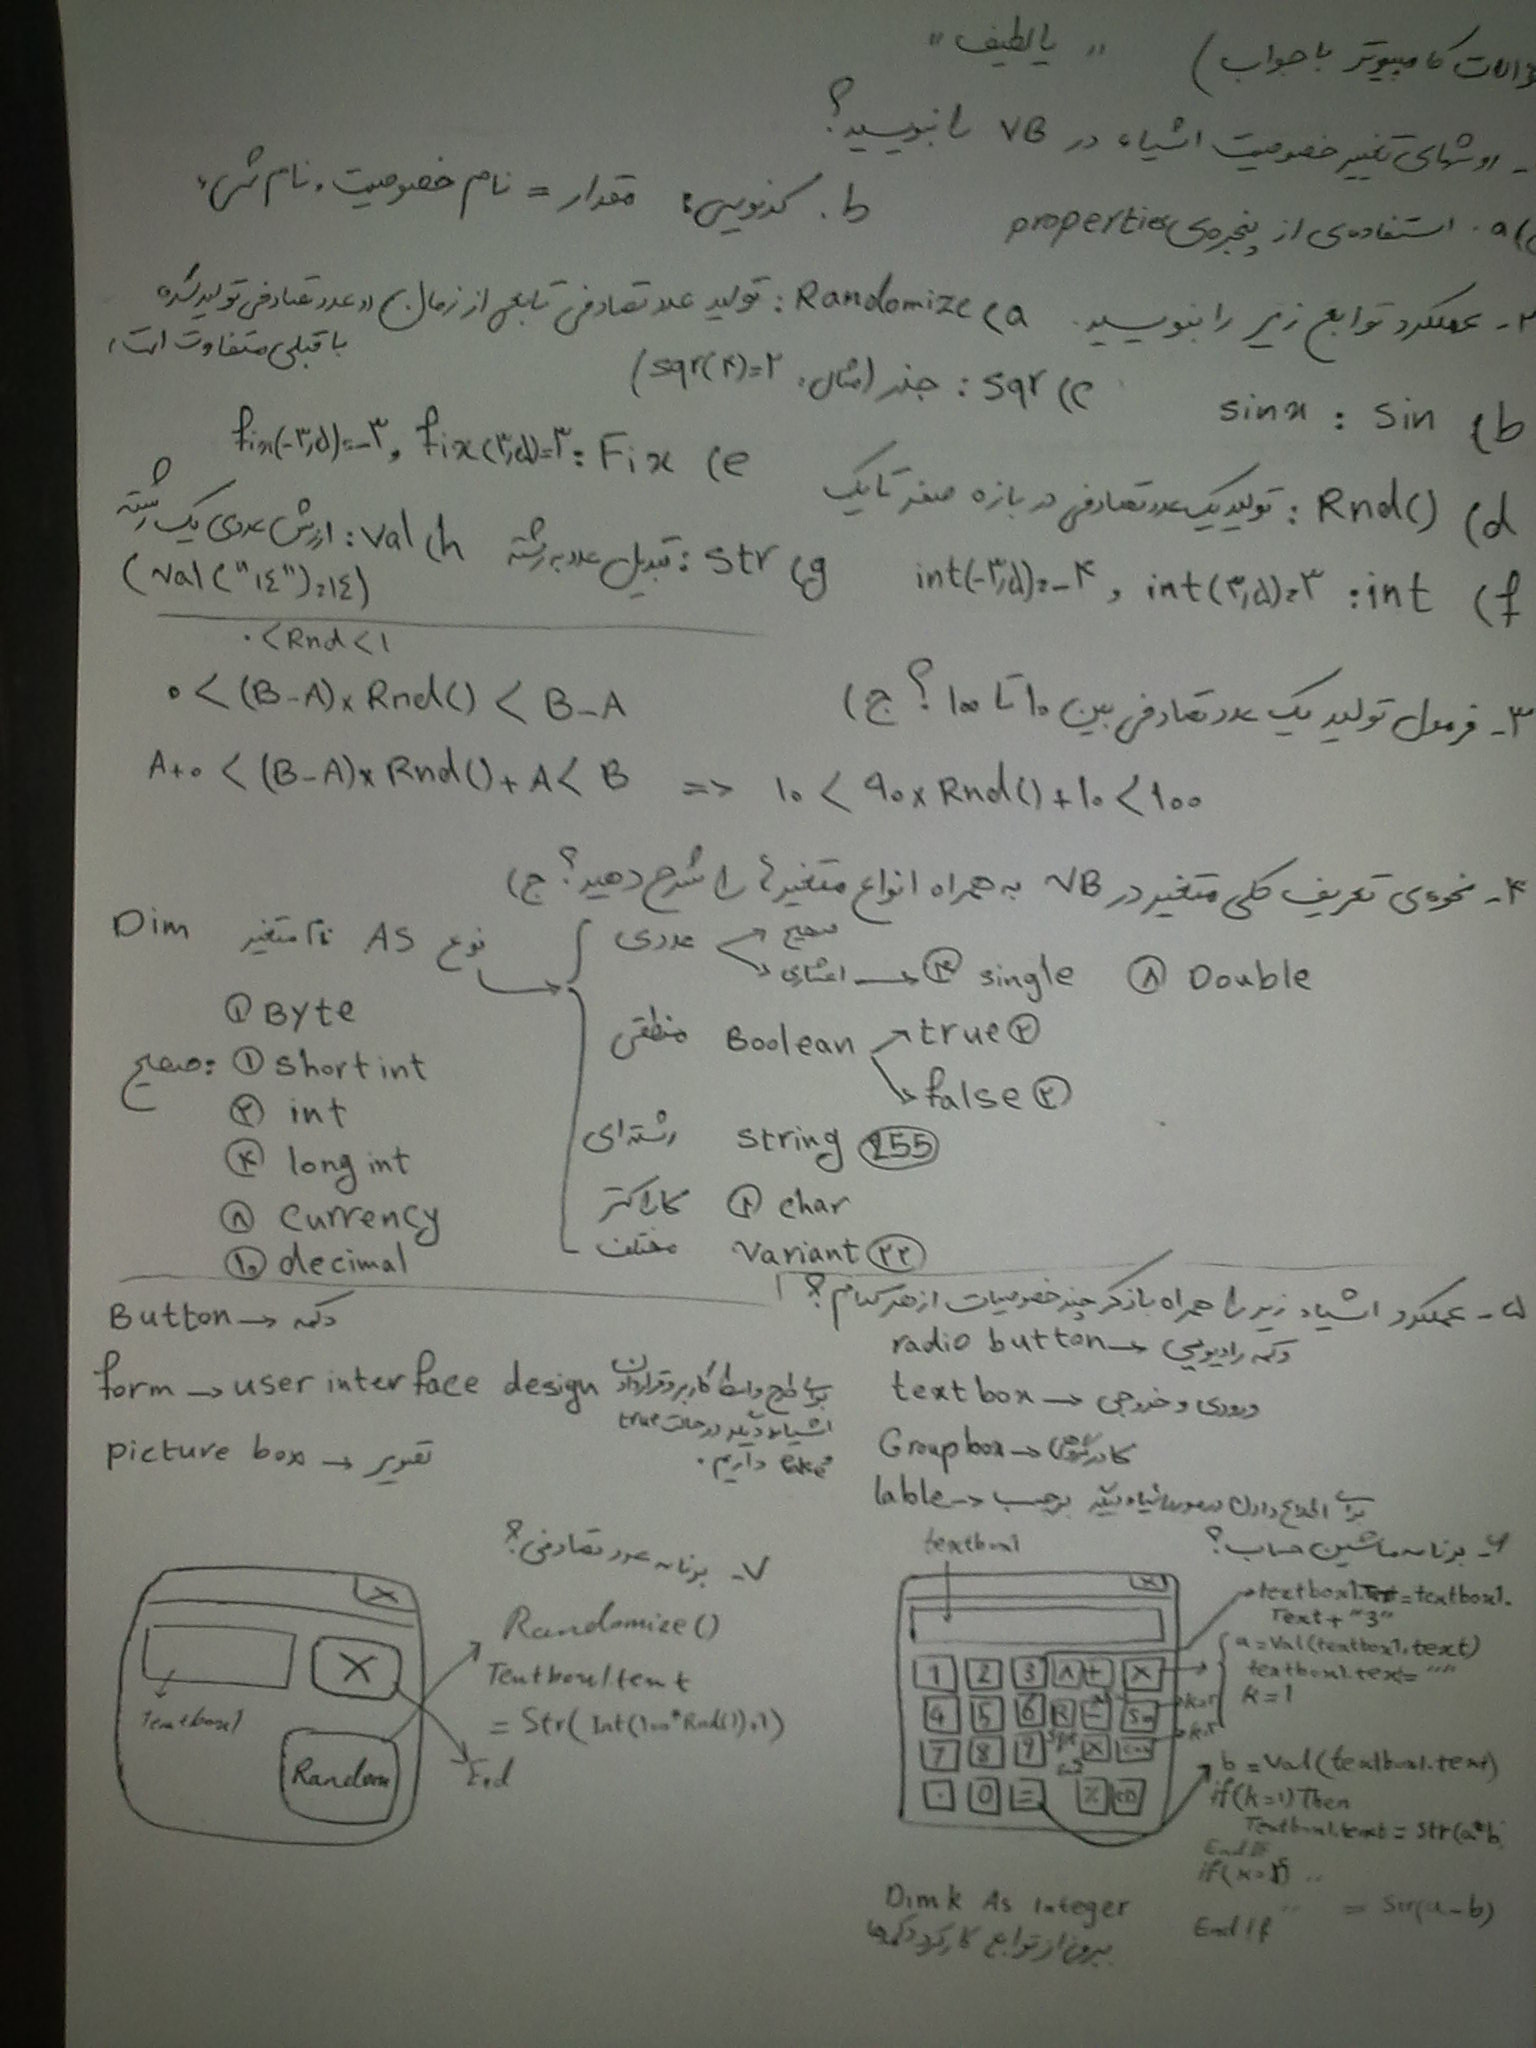 سوالات کامپیوتر با جواب) "یا لطیف"
- روشهای تغییر خصوصیت اشیاء در VB را بنویسید؟
a. استفاده‌ی از پنجره‌ی properties b. کدنویسی: مقدار = نام خصوصیت.نام شیء
۲- عملکرد توابع زیر را بنویسید. a) Randomize: تولید عدد تصادفی تابعی از زمان (عدد تصادفی تولید شده
با قبلی متفاوت است)
b) sin: sinx c) sqr: جذر (مثال: sqr(۴)=۲)
d) Rnd(): تولید یک عدد تصادفی در بازه صفر تا یک e) Fix: fix(۳,۵)=۳, fix(-۳,۵)=-۳
f) int: int(۳,۵)=۳, int(-۳,۵)=-۴ g) str: تبدیل عدد به رشته h) val: ارزش عددی یک رشته
(val("۱٤")=۱٤)
۳- فرمول تولید یک عدد تصادفی بین ۱۰ تا ۱۰۰؟ ج)
۰<Rnd<۱
۰<(B-A)×Rnd()<B-A
A+۰<(B-A)×Rnd()+A<B => ۱۰<۹۰×Rnd()+۱۰<۱۰۰
۴- نحوه‌ی تعریف کلی متغیر در VB به همراه انواع متغیرها را شرح دهید؟ ج)
Dim نام متغیر AS نوع
عددی صحیح
اعشاری → ۴ single ۸ Double
منطقی Boolean true ۲
false ۲
رشته‌ای string 255
کاراکتر ۲ char
مختلف Variant ۲۲
صحیح:
۱ Byte
۱ short int
۲ int
۴ long int
۸ currency
۱۰ decimal
۵- عملکرد اشیاء زیر را همراه با ذکر چند خصوصیات از هر کدام؟
radio button → دکمه رادیویی
textbox → ورودی و خروجی
Groupbox → کادر گروهی
lable → برچسب برای اطلاع دادن در مورد اشیاء دیگر
Button → دکمه
form → user interface design برای طرح واسط کاربر و قرار دادن
اشیاء دیگر در حالت true
داریم.
picture box → تصویر
۶- برنامه ماشین حساب؟
textbox1
textbox1.Text=textbox1.
Text+"3"
a=val(textbox1.text)
textbox1.text=""
k=1
1 2 3 + ×
4 5 6 R - Sin
7 8 9 × Cos
. 0 =
b=Val(textbox1.text)
if(k=1)Then
Textbox1.text=Str(a*b)
End IF
= Str(a-b)
End If
Dim k As Integer
بیرون از توابع کارکرد دکمه‌ها
۷- برنامه عدد تصادفی؟
X
X
Textbox1
Random
Randomize()
Textbox1.text
=Str(Int(100*Rnd())+1)
End